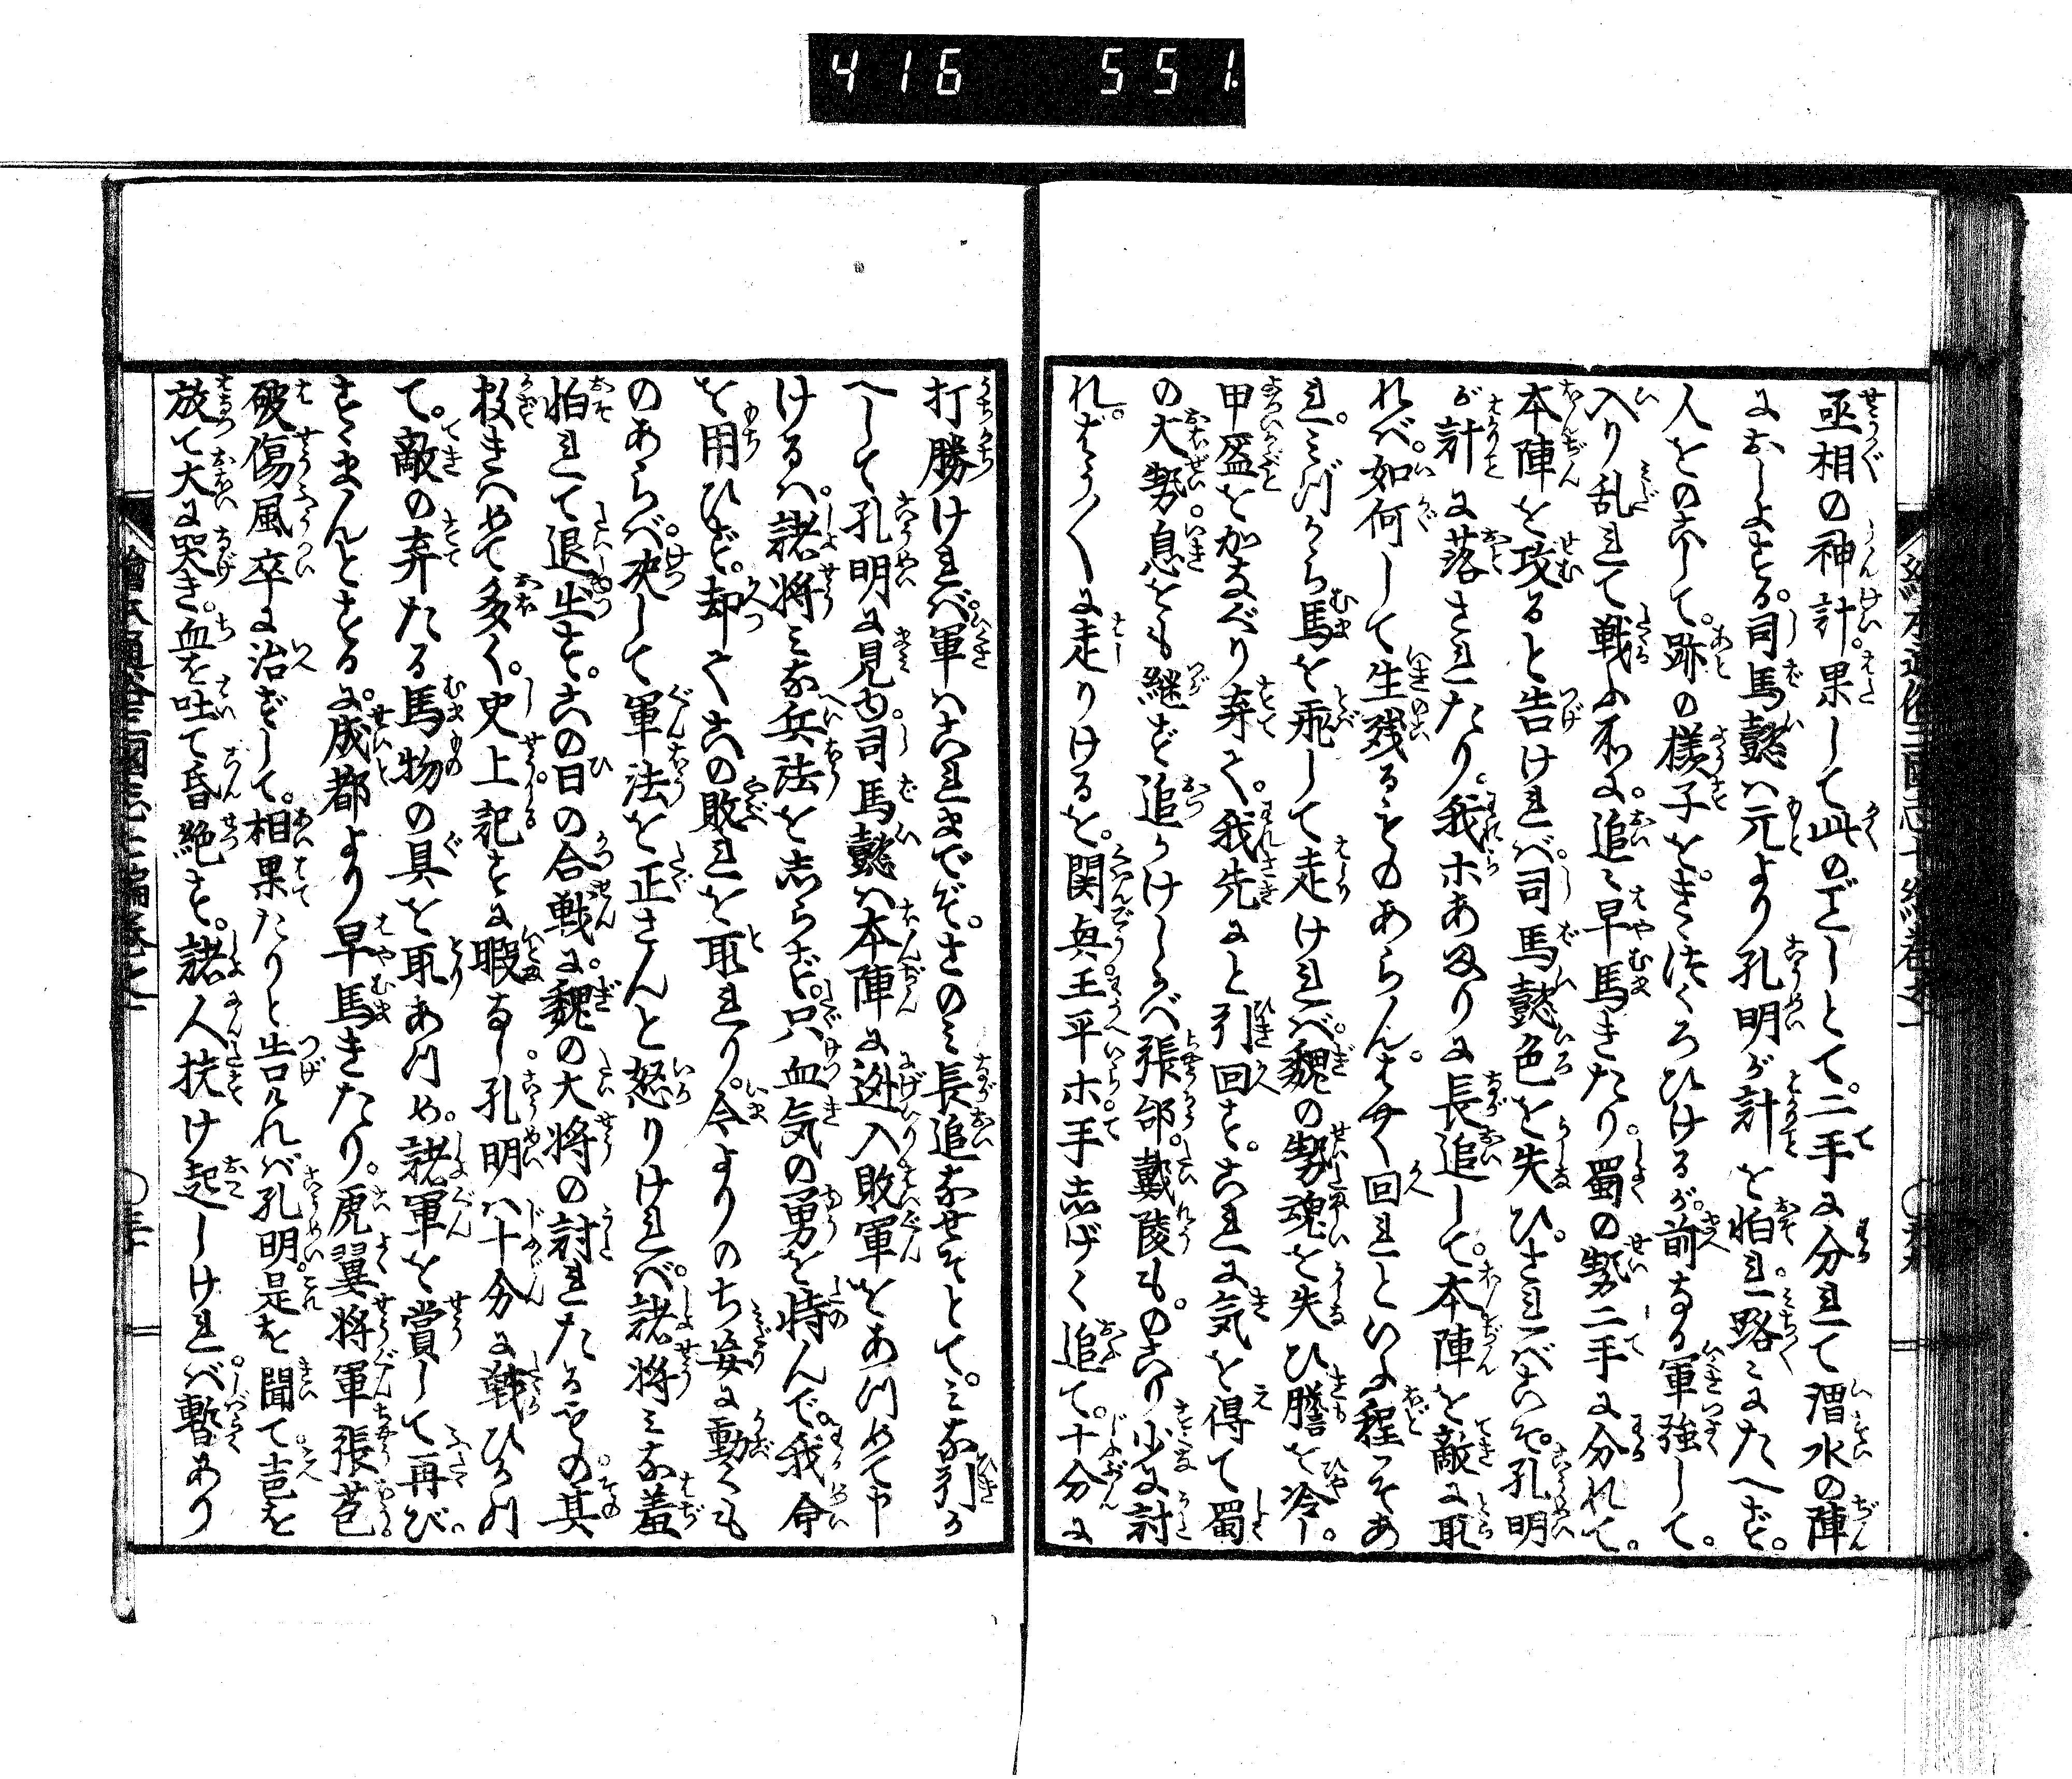 416 551
亟相の神計果して此のごしとて。二手に分れて渭水の陣
におしよする。司馬懿ハ元より孔明が計を怕れ路々にたへず。
人をのこして。跡の様子をきゝ法くろひけるが。前なる軍強して。
入り乱れて戦ふ不に。追々早馬きたり。蜀の勢二手に分れて。
本陣を攻ると告けれバ。司馬懿色を失ひ。されバこそ。孔明
が計に落されたり。我ホあまりに長追して。本陣を敵に取
れバ。如何して生残るものあらん。はやく回れといふ程こそあ
れ。ミづから馬を飛して走けれバ。魏の勢魂を失ひ膽を冷し。
甲盔をかなぐり弃て。我先にと引回す。これに気を得て蜀
の大勢。息をも継ず追かけしかバ張郃。戴陵も。のこり少に討
れ。はう〱に走りけるを。関興。王平ホ手志げく追て。十分に
打勝けれバ。軍ハこれまでぞ。さのミ長追なせそとて。ミな引か
へして孔明に見ゆ。司馬懿ハ本陣に迯入敗軍をあつめて申
けるハ。諸将ミな兵法を志らず。只血気の勇を恃んで。我命
を用ひず。却てこの敗れを取れり。今よりのち妄に動くも
のあらバ。决して軍法を正さんと怒りけれバ。諸将ミな羞
怕れて退出す。この日の合戦に。魏の大将の討れたるもの。其
数きハめて多く。史上記すに暇なし。孔明ハ十分に戦ひかつ
て。敵の弃たる馬物の具を取あつめ。諸軍を賞して再び。
すゝまんとするに。成都より早馬きたり。虎翼将軍張苞
破傷風卒に治ずして。相果たりと告けれバ孔明。是を聞て声を
放て大に哭き。血を吐て昏絶す。諸人扶け起しけれバ。暫あり